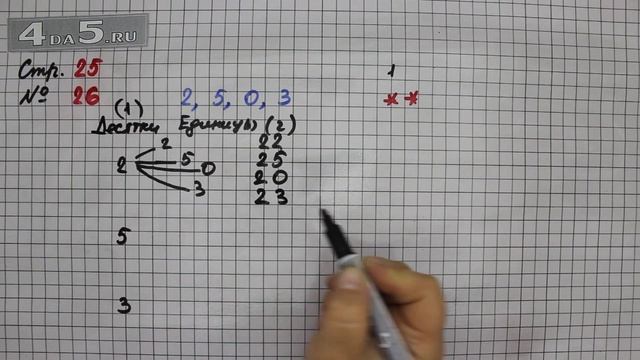 4DA5.RU
Стр. 25
№ 26
2, 5, 0, 3
1
* *
(1)
Десятки Единицы (2)
2
2 5 0
3
22
25
20
23
5
3